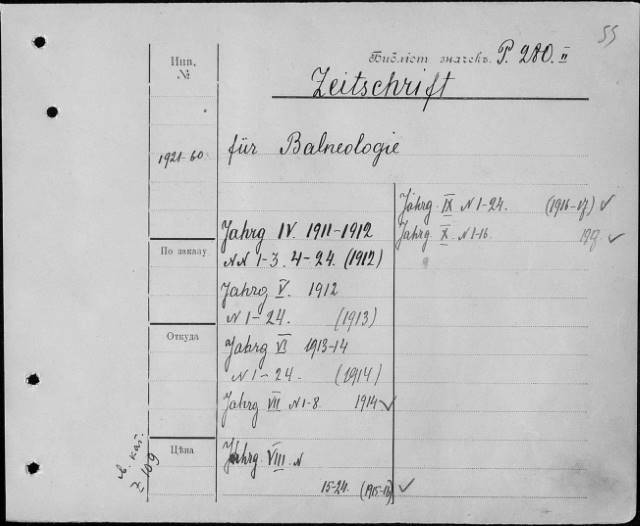 55
Инв. №
Библіот. значекъ. P. 280. II
Zeitschrift
1921-60.
für Balneologie
Jahrg IV. 1911-1912
NN 1-3. 4-24. (1912)
По заказу
Jahrg V. 1912
N 1-24. (1913)
Откуда
Jahrg VI 1913-14
N 1-24. (1914)
Jahrg VII N 1-8 1914 ✓
Цѣна
Jahrg. VIII. N
15-24. (1915-16) ✓
Jahrg. IX N 1-24. (1916-17) ✓
Jahrg. X. N 1-16. ✓
кат.
Z 109